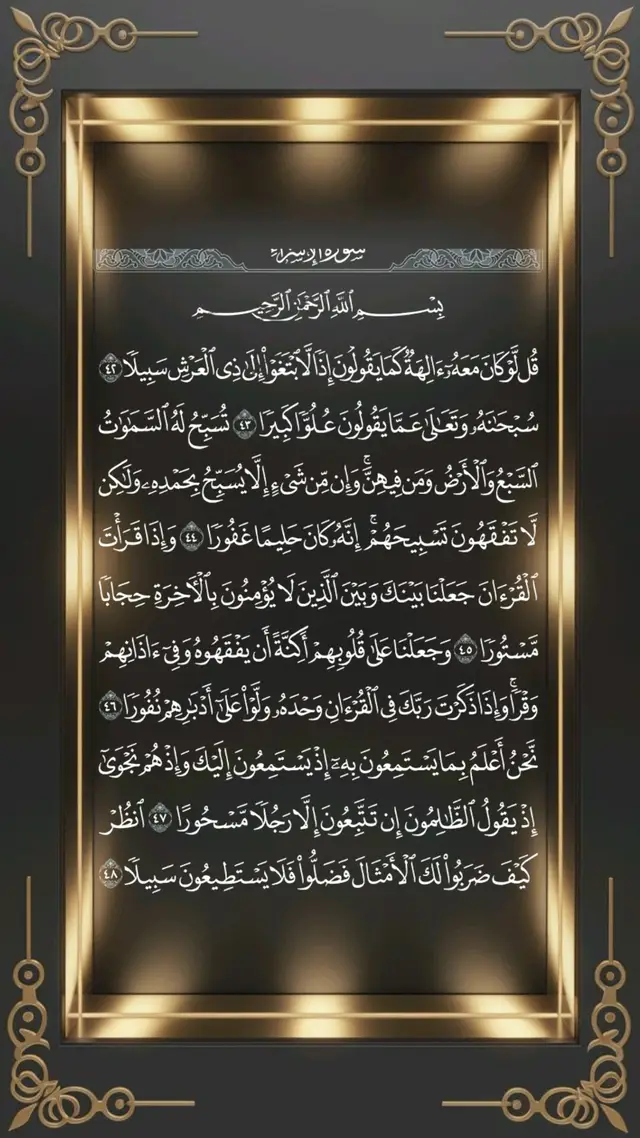 سورة الإسراء
بِسْمِ ٱللَّهِ ٱلرَّحْمَٰنِ ٱلرَّحِيمِ
قُل لَّوْ كَانَ مَعَهُۥٓ ءَالِهَةٌ كَمَا يَقُولُونَ إِذًا لَّٱبْتَغَوْا۟ إِلَىٰ ذِى ٱلْعَرْشِ سَبِيلًا ٤٢
سُبْحَٰنَهُۥ وَتَعَٰلَىٰ عَمَّا يَقُولُونَ عُلُوًّا كَبِيرًا ٤٣ تُسَبِّحُ لَهُ ٱلسَّمَٰوَٰتُ
ٱلسَّبْعُ وَٱلْأَرْضُ وَمَن فِيهِنَّ ۚ وَإِن مِّن شَىْءٍ إِلَّا يُسَبِّحُ بِحَمْدِهِۦ وَلَٰكِن
لَّا تَفْقَهُونَ تَسْبِيحَهُمْ ۗ إِنَّهُۥ كَانَ حَلِيمًا غَفُورًا ٤٤ وَإِذَا قَرَأْتَ
ٱلْقُرْءَانَ جَعَلْنَا بَيْنَكَ وَبَيْنَ ٱلَّذِينَ لَا يُؤْمِنُونَ بِٱلْءَاخِرَةِ حِجَابًا
مَّسْتُورًا ٤٥ وَجَعَلْنَا عَلَىٰ قُلُوبِهِمْ أَكِنَّةً أَن يَفْقَهُوهُ وَفِىٓ ءَاذَانِهِمْ
وَقْرًا ۚ وَإِذَا ذَكَرْتَ رَبَّكَ فِى ٱلْقُرْءَانِ وَحْدَهُۥ وَلَّوْا۟ عَلَىٰٓ أَدْبَٰرِهِمْ نُفُورًا ٤٦
نَّحْنُ أَعْلَمُ بِمَا يَسْتَمِعُونَ بِهِۦٓ إِذْ يَسْتَمِعُونَ إِلَيْكَ وَإِذْ هُمْ نَجْوَىٰٓ
إِذْ يَقُولُ ٱلظَّٰلِمُونَ إِن تَتَّبِعُونَ إِلَّا رَجُلًا مَّسْحُورًا ٤٧ ٱنظُرْ
كَيْفَ ضَرَبُوا۟ لَكَ ٱلْأَمْثَالَ فَضَلُّوا۟ فَلَا يَسْتَطِيعُونَ سَبِيلًا ٤٨